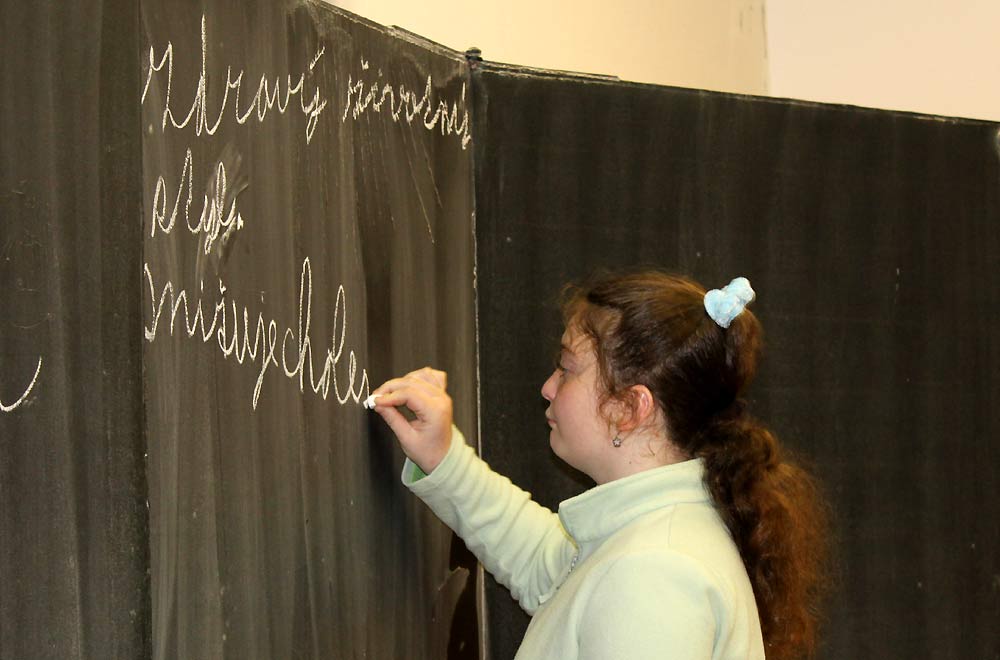 Zdravý životní
styl
snižuje choles